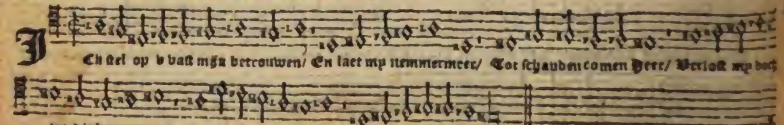 ICk stel op v vast mijn betrouwen/ En laet my nemmermeer/ Tot schanden comen Heer/ Verlost my doch